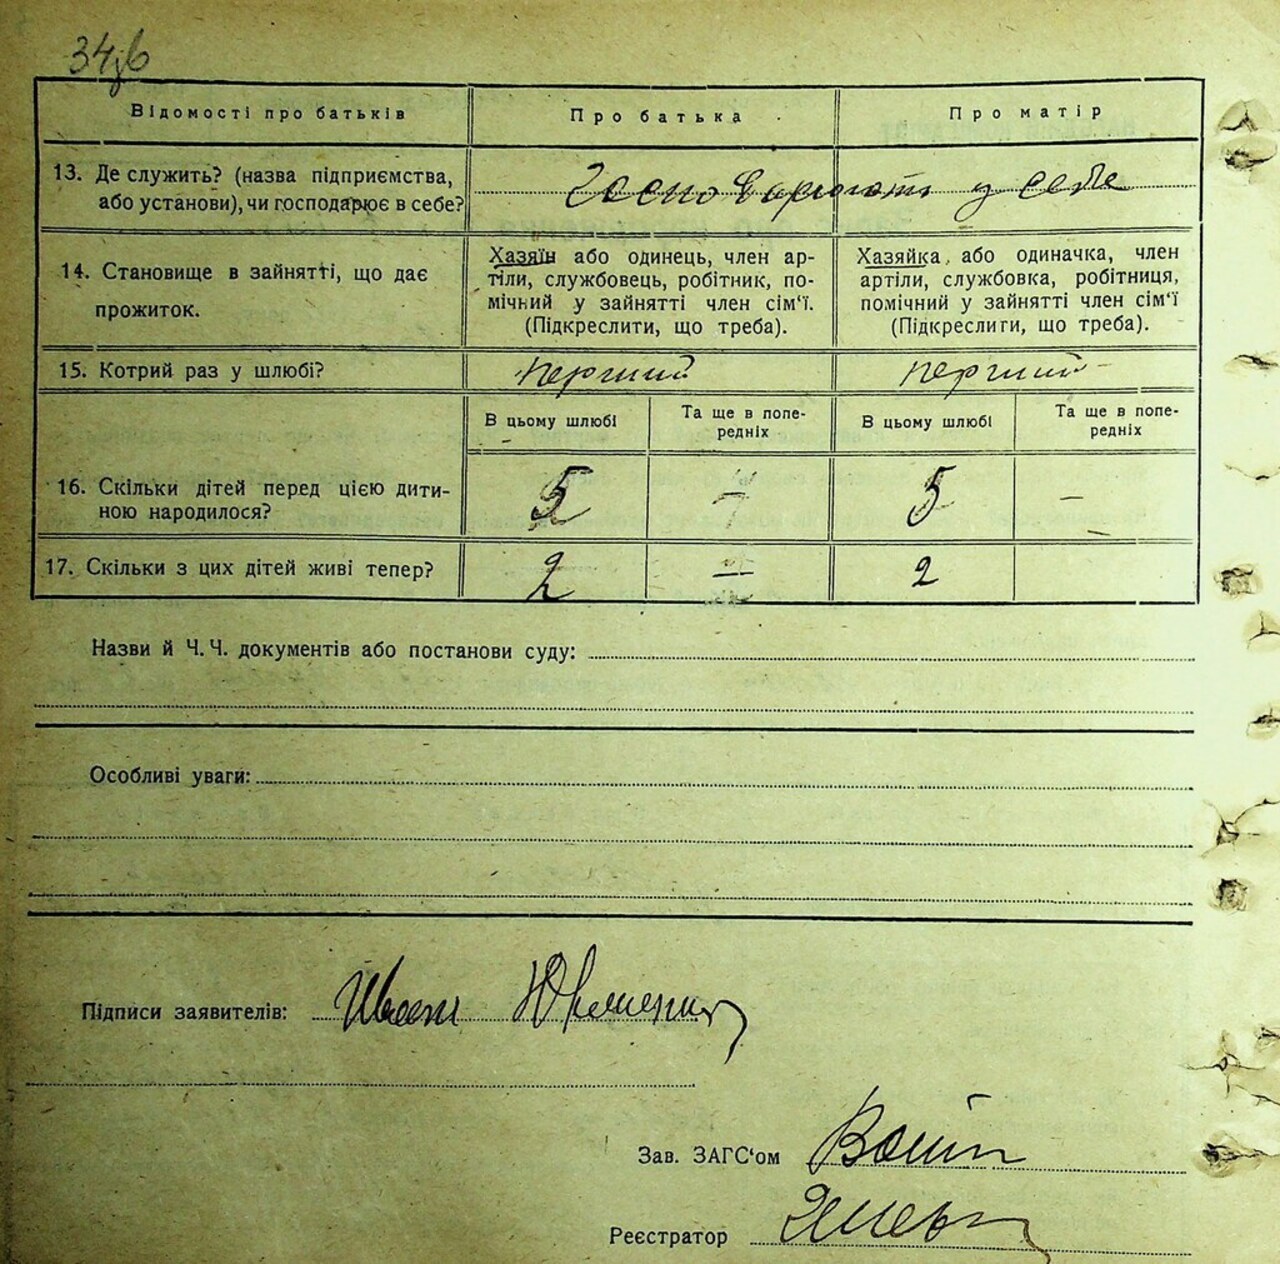 34зв
Відомості про батьків
Про батька
Про матір
13. Де служить? (назва підприємства,
або установи), чи господарює в себе?
Господарюють у себе
14. Становище в зайнятті, що дає
прожиток.
Хазяїн або одинець, член ар-
тіли, службовець, робітник, по-
мічний у зайнятті член сім'ї.
(Підкреслити, що треба).
Хазяйка, або одиначка, член
артіли, службовка, робітниця,
помічний у зайнятті член сім'ї
(Підкреслити, що треба).
15. Котрий раз у шлюбі?
перший
перший
В цьому шлюбі
Та ще в попе-
редніх
В цьому шлюбі
Та ще в попе-
редніх
16. Скільки дітей перед цією дити-
ною народилося?
5
—
5
—
17. Скільки з цих дітей живі тепер?
2
—
2
Назви й Ч. Ч. документів або постанови суду:
Особливі уваги:
Підписи заявителів: Иван
Зав. ЗАГС'ом
Реєстратор